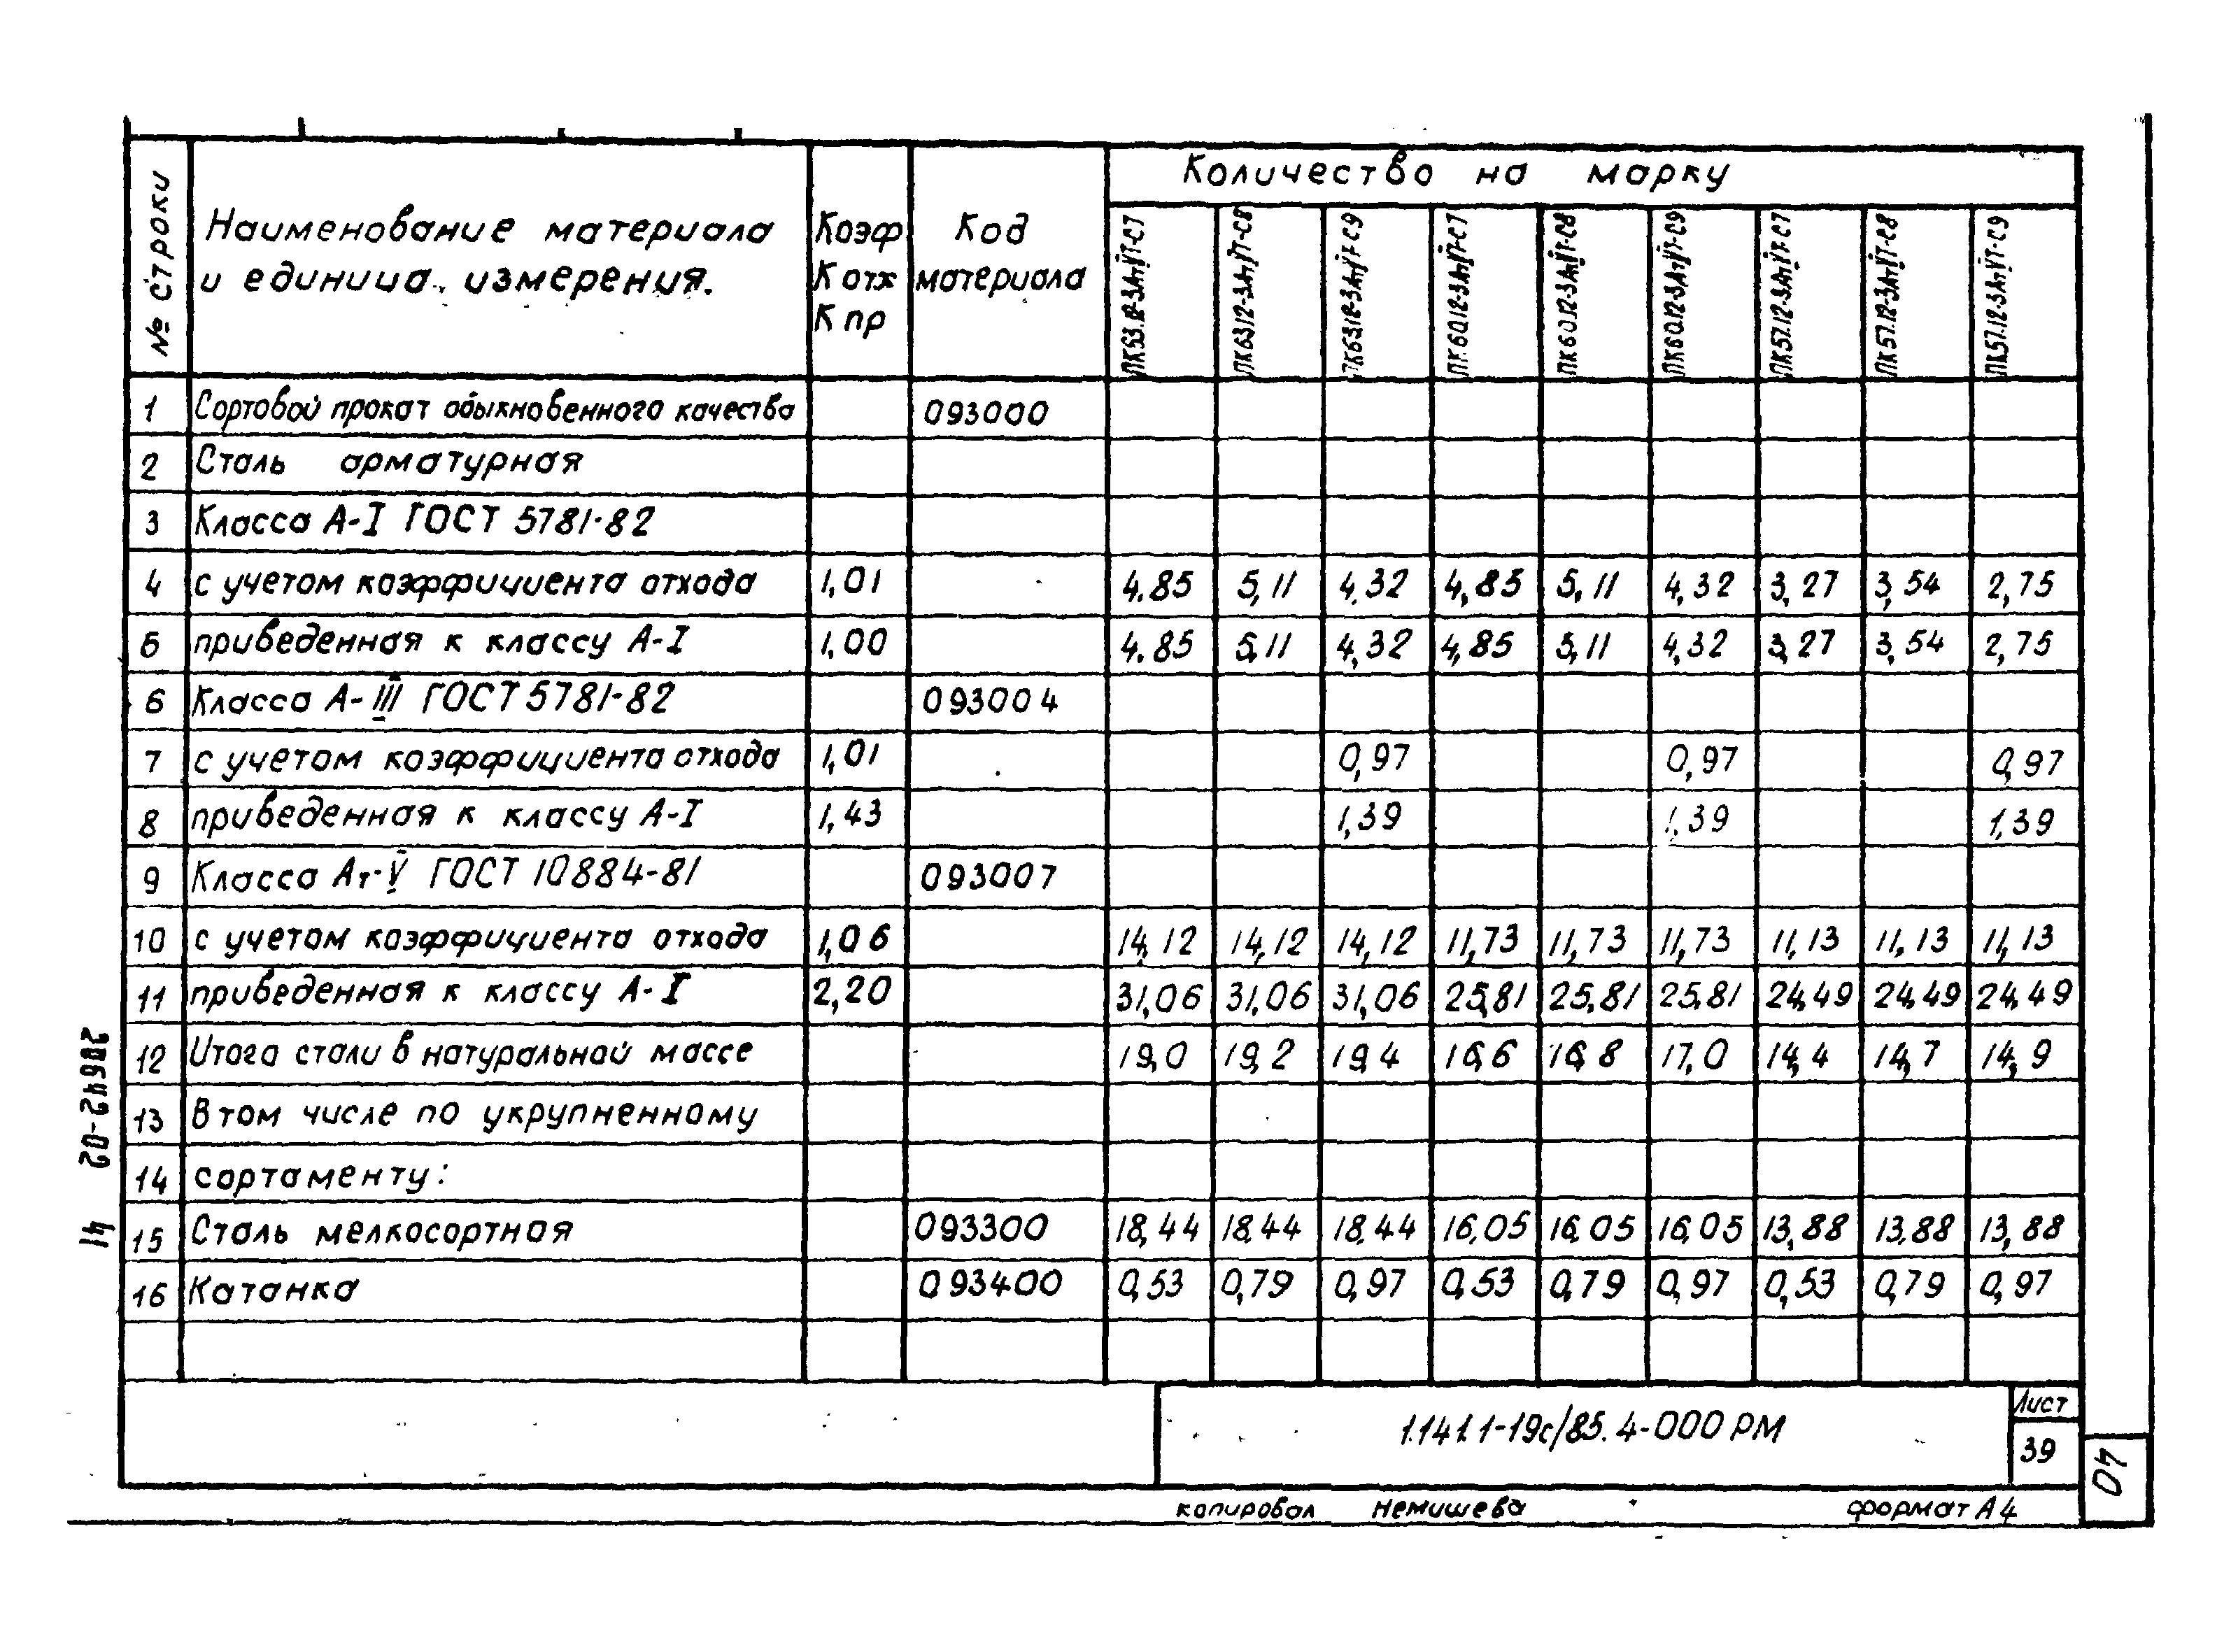 № строки
Наименование материала
и единица измерения.
Коэф
К отх
К пр
Код
материала
Количество на марку
ПК63.12-3АтV̄Т-С7
ПК63.12-3АтV̄Т-С8
ПК63.12-3АтV̄Т-С9
ПК60.12-3АтV̄Т-С7
ПК60.12-3АтV̄Т-С8
ПК60.12-3АтV̄Т-С9
ПК57.12-3АтV̄Т-С7
ПК57.12-3АтV̄Т-С8
ПК57.12-3АтV̄Т-С9
1 Сортовой прокат обыкновенного качества 093000
2 Сталь арматурная
3 Класса А-I ГОСТ 5781-82
4 с учетом коэффициента отхода 1,01 4.85 5,11 4.32 4,85 5,11 4,32 3,27 3,54 2,75
5 приведенная к классу А-I 1,00 4.85 5,11 4,32 4,85 5,11 4,32 3,27 3,54 2,75
6 Класса А-III ГОСТ 5781-82 093004
7 с учетом коэффициента отхода 1,01 0,97 0,97 0,97
8 приведенная к классу А-I 1,43 1,39 1,39 1,39
9 Класса Ат-V ГОСТ 10884-81 093007
10 с учетом коэффициента отхода 1,06 14,12 14,12 14,12 11,73 11,73 11,73 11,13 11,13 11,13
11 приведенная к классу А-I 2,20 31,06 31,06 31,06 25,81 25,81 25,81 24,49 24,49 24,49
12 Итога стали в натуральной массе 19,0 19,2 19,4 16,6 16,8 17,0 14,4 14,7 14,9
13 В том числе по укрупненному
14 сортаменту:
15 Сталь мелкосортная 093300 18,44 18.44 18.44 16,05 16.05 16,05 13,88 13,88 13,88
16 Катанка 093400 0,53 0,79 0,97 0,53 0,79 0,97 0,53 0,79 0,97
20642-02 41
1.141.1-19с/85.4-000 РМ
Лист
39
40
копировал Немишева формат А4